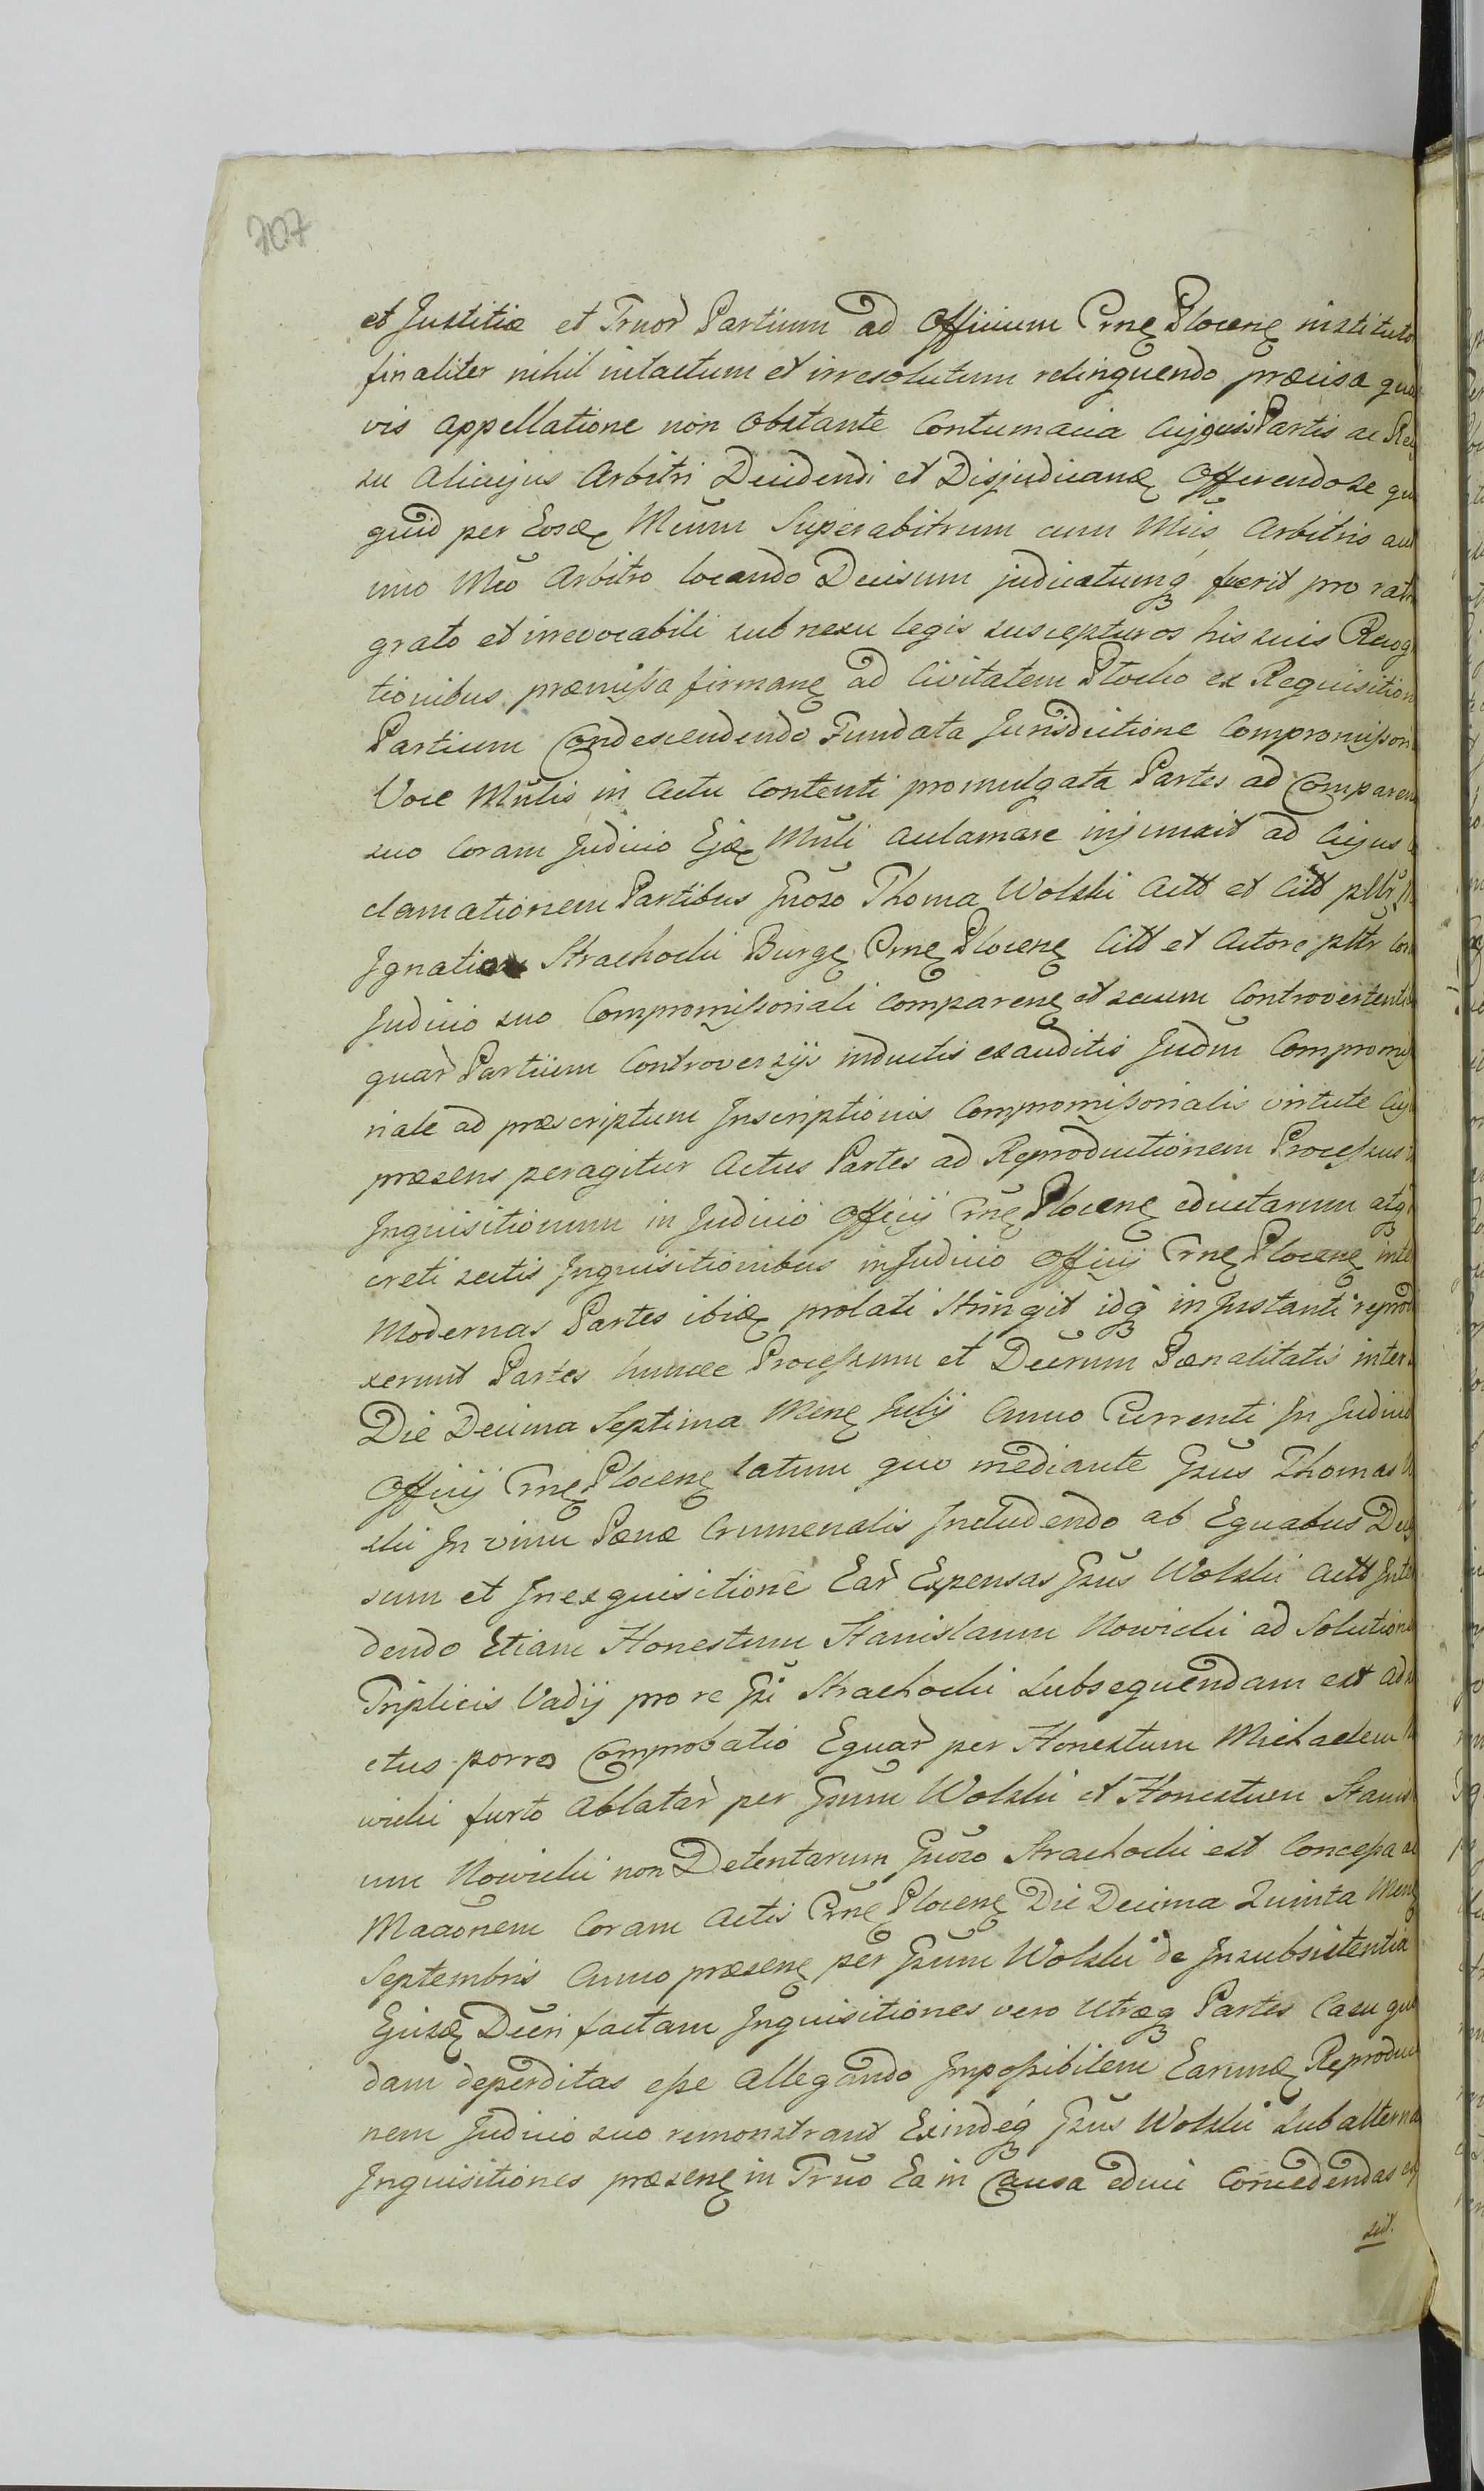 707
et Justitiæ et Truor Partium ad Officium Crne Plocene institut
finaliter nihil intactum et irresolutum relinquendo præcisa qua
vis appellatione non obstante Contumacia Cujqvis Partis ac
su Alicujus Arbitri Decidendi et Disjudicand Offerendose qu
quid per Eosd Mcum Superabitrum cum Mcis Arbitris au
uno Mco Arbitro locando Decisum judicatumq fuerit pro rat
grato et irrevocabili sub nexu legis suscepturos his suis Recog
tionibus præmissa firmane ad Civitatem Plocko ex Requisition
Partium Condescendendo Fundata Jurisdictione Compromisson
Voce Mnlis in Actu Contenti promulgata Partes ad Comparen
suo Coram Judicio Ejsd Mnli Aclamare injunxit ad Cujus
clamationem Partibus Gnoso Thoma Wolski Actt et Citt pltr
Ignatio Strachocki Burge Crne Plocene Citt et Actore pltr Cor
Judicio suo Compromissoriali Comparene et secum Controvertenti
quar Partium Controversijs inductis exauditis Judm Compromis
riale ad præscriptum Inscriptionis Compromissorialis virtute Cuj
præsens peragitur Actus Partes ad Reproductionem Processus
Inquisitionum in Judicio Officij Crne Plocene eductarum atq
creti scitis Inquisitionibus in Judicio Officij Crne Plocene inte
Modernas Partes ibid prolati Stringit idq in Instanti reprod
xerunt Partes huncce Processum et Decrum Pænalitatis inter
Die Decima Septima Mene Julij Anno Currenti In Judicio
Officij Crne Plocene latum quo mediante Gsus Thomas
ski In vim Pænæ Crumenalis Includendo ab Equabus De
sum et In exquisitione Ear Expensas Gsus Wolski Actt Inte
dendo Etiam Honestum Stanislaum Nowicki ad Solutione
Triplicis Vadij pro re Gsi Strachocki Subsequendam est ad
ctus porro Comprobatio Equar per Honestum Michaelem
wicki furto Ablatar per Gsum Wolski et Honestum Stanis
um Nowicki non Detentarum Gnoso Strachocki est Concessa
Maaonem Coram Actis Crne Plocene Die Decima Quinta Mene
Septembris Anno præsene per Gsum Wolski de Insubsistentia
Ejusd Decri factam Inquisitiones vero Utræq Partes Casu quo
dam deperditas esse Allegando Impossibilem Earumd Reproduc
nem Judicio suo remonstrant Exindeq Gsus Wolski Subaltern
Inquisitiones præsene in Truo Ea in Causa educi Concedendas